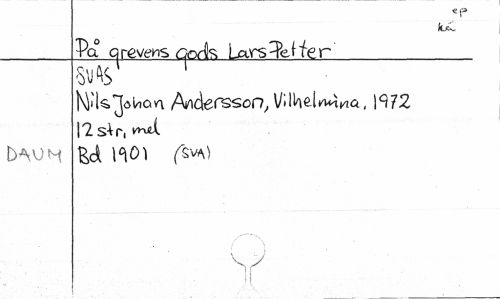 ep
På grevens gods Lars Petter
SVAS
Nils Johan Andersson, Vilhelmina, 1972
12 str, mel
DAUM Bd 1901 (SVA)